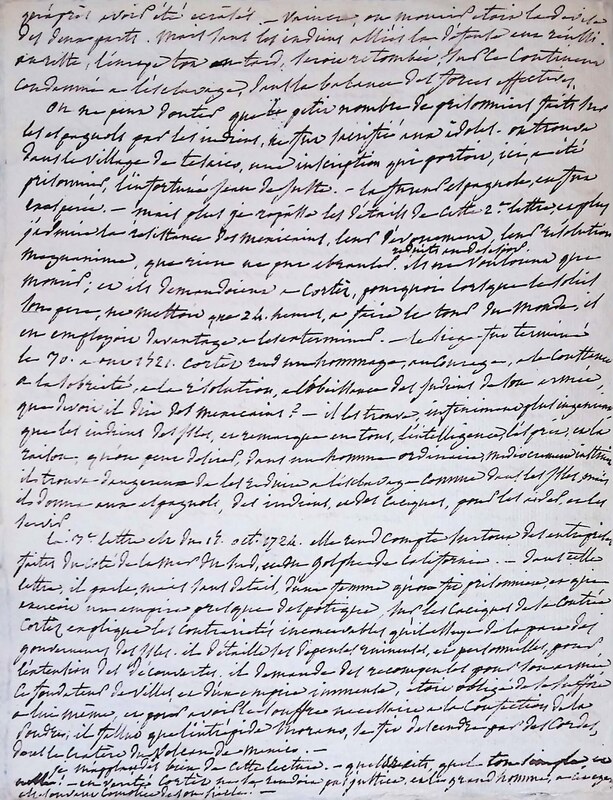 après avoir été écrasés. — vaincre, ou mourir etoit la devise
des deux parts. mais sans les indiens alliés la defense eut réussi
au reste, l'europe tot ou tard, seroit retombée sur le continent
condamné a l'esclavage, dans la balance des forces effectives.
On ne peut douter que le petit nombre de prisonniers faits sur
les espagnols par les indiens, ne fut sacrifié aux idoles. on trouva
dans le village de tesaico, une inscription qui portoit, ici, a été
prisonnier, l'infortuné jean de juste. — la fureur espagnole, en fut
exaspérée. — mais plus je repasse les détails de cette 2e lettre, et plus
j'admire la resistance des mexicains, leur dévouement, leur résolution
magnanime, que rien ne put ebranler. réduits au desespoir ils ne vouloient que
mourir; et ils demandoient a Cortez, pourquoi lorsque le soleil
son pere, ne mettoit que 24 heures, a faire le tour du monde, il
en employoit davantage a les exterminer. — le siege fut terminé
le 30. aout 1521. Cortez rend un hommage, au courage, a la constance
a la sobrieté, a la résolution, a l'obéissance des indiens de son armée,
que devoit il dire des mexicains? — il les trouve, infiniment plus ingenieux
que les indiens des isles, et remarque en tous, l'intelligence, et la
raison, qu'on peut desirer, dans un homme ordinaire, mediocrement
il trouve dangereux de les reduire a l'esclavage comme dans les isles, mais
il donne aux espagnols, des indiens, et des caciques, pour les aider, et les
servir.
La 3e lettre est du 15. oct. 1524. elle rend compte surtout des entreprises
faites du coté de la mer du sud, et du golphe de californie. — dans cette
lettre, il parle, mais sans detail, d'une femme qu'on fit prisonniere, et qui
exercoit un empire presque despotique, sur les Caciques de la contrée
Cortez explique les contrarietés inconcevables, qu'il essuye de la part des
gouverneurs des isles. il detaille ses depenses ruineuses, et personnelles, pour
l'extension des découvertes. il demande des recompenses pour son armée
Ce fondateur de villes et d'un empire immense, etoit obligé de se suffire
a lui même, et pour avoir le souffre necessaire a la confection de la
poudre, il fallut que l'intrépide Montano, se fit descendre par des cordes,
dans le cratere du Volcan de mexico. —
je m'applaudis bien de cette lecture. — quel ton simple et
noble! — en verité Cortez ne se rendoit pas justice, et le grand homme, a